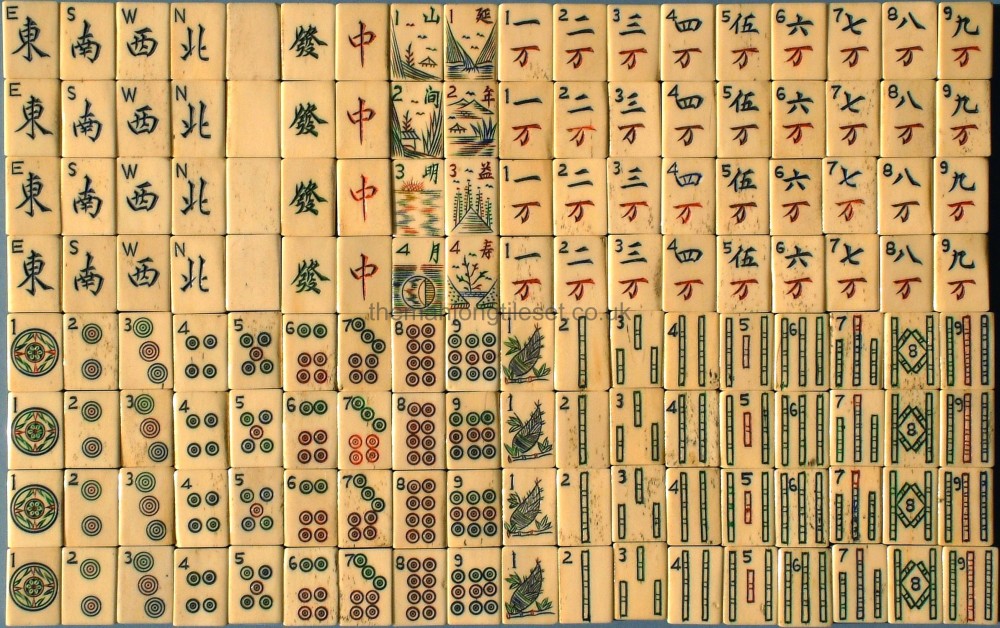 E 東 S 南 W 西 N 北 發 中 1 山 1 延 1 一万 2 二万 3 三万 4 四万 5 伍万 6 六万 7 七万 8 八万 9 九万
E 東 S 南 W 西 N 北 發 中 2 间 2 年 1 一万 2 二万 3 三万 4 四万 5 伍万 6 六万 7 七万 8 八万 9 九万
E 東 S 南 W 西 N 北 發 中 3 明 3 益 1 一万 2 二万 3 三万 4 四万 5 伍万 6 六万 7 七万 8 八万 9 九万
E 東 S 南 W 西 N 北 發 中 4 月 4 寿 1 一万 2 二万 3 三万 4 四万 5 伍万 6 六万 7 七万 8 八万 9 九万
themahjongtileset.co.uk
1 2 3 4 5 6 7 8 9 1 2 3 4 5 6 7 8 9
1 2 3 4 5 6 7 8 9 1 2 3 4 5 6 7 8 9
1 2 3 4 5 6 7 8 9 1 2 3 4 5 6 7 8 9
1 2 3 4 5 6 7 8 9 1 2 3 4 5 6 7 8 9